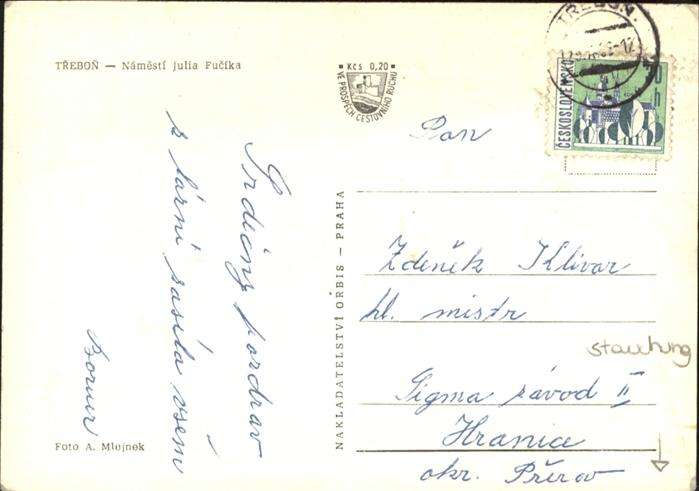 TŘEBOŇ — Náměstí Julia Fučíka
Kčs 0,20
VE PROSPĚCH CESTOVNÍHO RUCHU
TŘEBOŇ
ČESKOSLOVENSKO
Srdečný pozdrav
z lázní zasílá všem
NAKLADATELSTVÍ ORBIS — PRAHA
Pan
Zdeněk Klivar
hl. mistr
Sigma závod II
Hranice
okr. Přerov
Foto A. Mlejnek